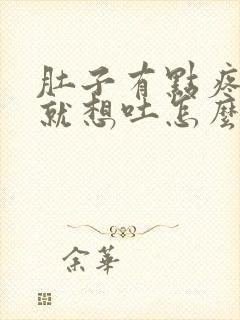 肚子有點疼
就想吐怎麼
余華